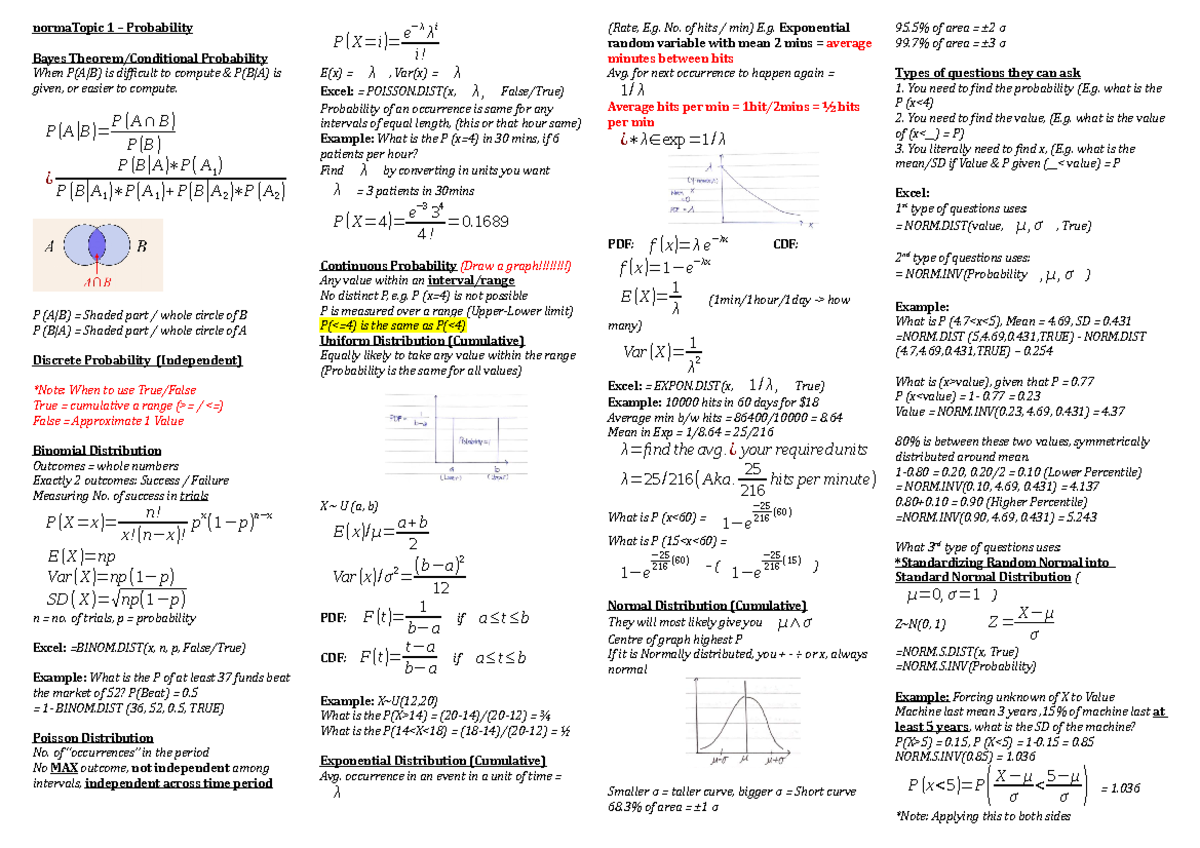 normaTopic 1 – Probability
Bayes Theorem/Conditional Probability
When P(A|B) is difficult to compute & P(B|A) is
given, or easier to compute.
P(A|B)=P(A∩B)/P(B)
¿ P(B|A)∗P(A₁)/(P(B|A₁)∗P(A₁)+P(B|A₂)∗P(A₂))
A B
A∩B
P (A|B) = Shaded part / whole circle of B
P (B|A) = Shaded part / whole circle of A
Discrete Probability (Independent)
*Note: When to use True/False
True = cumulative a range (> = / <=)
False = Approximate 1 Value
Binomial Distribution
Outcomes = whole numbers
Exactly 2 outcomes: Success / Failure
Measuring No. of success in trials
P(X=x)=n!/(x!(n−x)!) pˣ(1−p)ⁿ⁻ˣ
E(X)=np
Var(X)=np(1−p)
SD(X)=√(np(1−p))
n = no. of trials, p = probability
Excel: =BINOM.DIST(x, n, p, False/True)
Example: What is the P of at least 37 funds beat
the market of 52? P(Beat) = 0.5
= 1- BINOM.DIST (36, 52, 0.5, TRUE)
Poisson Distribution
No. of "occurrences" in the period
No MAX outcome, not independent among
intervals, independent across time period
P(X=i)=e^(−λ)λ^i/i!
E(x) = λ , Var(x) = λ
Excel: = POISSON.DIST(x, λ, False/True)
Probability of an occurrence is same for any
intervals of equal length, (this or that hour same)
Example: What is the P (x=4) in 30 mins, if 6
patients per hour?
Find λ by converting in units you want
λ = 3 patients in 30mins
P(X=4)=e^(−3)3^4/4!=0.1689
Continuous Probability (Draw a graph!!!!!!!!)
Any value within an interval/range
No distinct P, e.g. P (x=4) is not possible
P is measured over a range (Upper-Lower limit)
P(<=4) is the same as P(<4)
Uniform Distribution (Cumulative)
Equally likely to take any value within the range
(Probability is the same for all values)
PDF = 1/(b-a)
Probability = 1
a b
(lower) (Upper)
X~ U (a, b)
E(x)/μ=(a+b)/2
Var(x)/σ²=(b−a)²/12
PDF: F(t)=1/(b−a) if a≤t≤b
CDF: F(t)=(t−a)/(b−a) if a≤t≤b
Example: X~U(12,20)
What is the P(X>14) = (20-14)/(20-12) = ¾
What is the P(14<X<18) = (18-14)/(20-12) = ½
Exponential Distribution (Cumulative)
Avg. occurrence in an event in a unit of time =
λ
(Rate, E.g. No. of hits / min) E.g. Exponential
random variable with mean 2 mins = average
minutes between hits
Avg. for next occurrence to happen again =
1/λ
Average hits per min = 1hit/2mins = ½ hits
per min
¿∗λ∈exp=1/λ
λ
x
PDF: f(x)=λe^(−λx) CDF:
f(x)=1−e^(−λx)
E(X)=1/λ (1min/1hour/1day -> how
many)
Var(X)=1/λ²
Excel: = EXPON.DIST(x, 1/λ, True)
Example: 10000 hits in 60 days for $18
Average min b/w hits = 86400/10000 = 8.64
Mean in Exp = 1/8.64 = 25/216
λ=find the avg.¿ your required units
λ=25/216(Aka. 25/216 hits per minute)
What is P (x<60) = 1−e^(−25/216(60))
What is P (15<x<60) =
1−e^(−25/216(60)) – ( 1−e^(−25/216(15)) )
Normal Distribution (Cumulative)
They will most likely give you μ∧σ
Centre of graph highest P
If it is Normally distributed, you + - ÷ or x, always
normal
μ-σ μ μ+σ
Smaller σ = taller curve, bigger σ = Short curve
68.3% of area = ±1 σ
95.5% of area = ±2 σ
99.7% of area = ±3 σ
Types of questions they can ask
1. You need to find the probability (E.g. what is the
P (x<4)
2. You need to find the value, (E.g. what is the value
of (x<__) = P)
3. You literally need to find x, (E.g. what is the
mean/SD if Value & P given (__< value) = P
Excel:
1st type of questions uses:
= NORM.DIST(value, μ,σ , True)
2nd type of questions uses:
= NORM.INV(Probability ,μ,σ )
Example:
What is P (4.7<x<5), Mean = 4.69, SD = 0.431
=NORM.DIST (5,4.69,0.431,TRUE) - NORM.DIST
(4.7,4.69,0.431,TRUE) – 0.254
What is (x>value), given that P = 0.77
P (x<value) = 1- 0.77 = 0.23
Value = NORM.INV(0.23, 4.69, 0.431) = 4.37
80% is between these two values, symmetrically
distributed around mean.
1-0.80 = 0.20, 0.20/2 = 0.10 (Lower Percentile)
= NORM.INV(0.10, 4.69, 0.431) = 4.137
0.80+0.10 = 0.90 (Higher Percentile)
=NORM.INV(0.90, 4.69, 0.431) = 5.243
What 3rd type of questions uses:
*Standardizing Random Normal into
Standard Normal Distribution (
μ=0,σ=1 )
Z~N(0, 1) Z=(X−μ)/σ
=NORM.S.DIST(x, True)
=NORM.S.INV(Probability)
Example: Forcing unknown of X to Value
Machine last mean 3 years ,15% of machine last at
least 5 years, what is the SD of the machine?
P(X>5) = 0.15, P (X<5) = 1-0.15 = 0.85
NORM.S.INV(0.85) = 1.036
P(x<5)=P((X−μ)/σ<(5−μ)/σ) = 1.036
*Note: Applying this to both sides